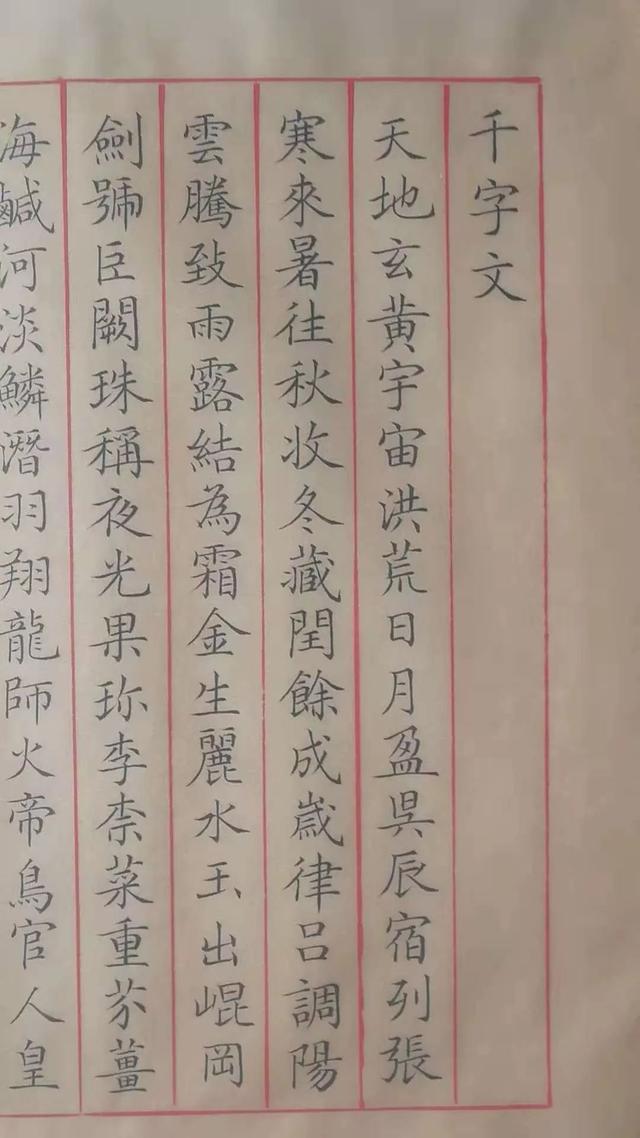 千字文
天地玄黄宇宙洪荒日月盈昗辰宿列張
寒來暑往秋收冬藏閏餘成歲律呂調陽
雲騰致雨露結為霜金生麗水玉出崐岡
劍號巨闕珠稱夜光果珎李柰菜重芥薑
海鹹河淡鱗潛羽翔龍師火帝鳥官人皇